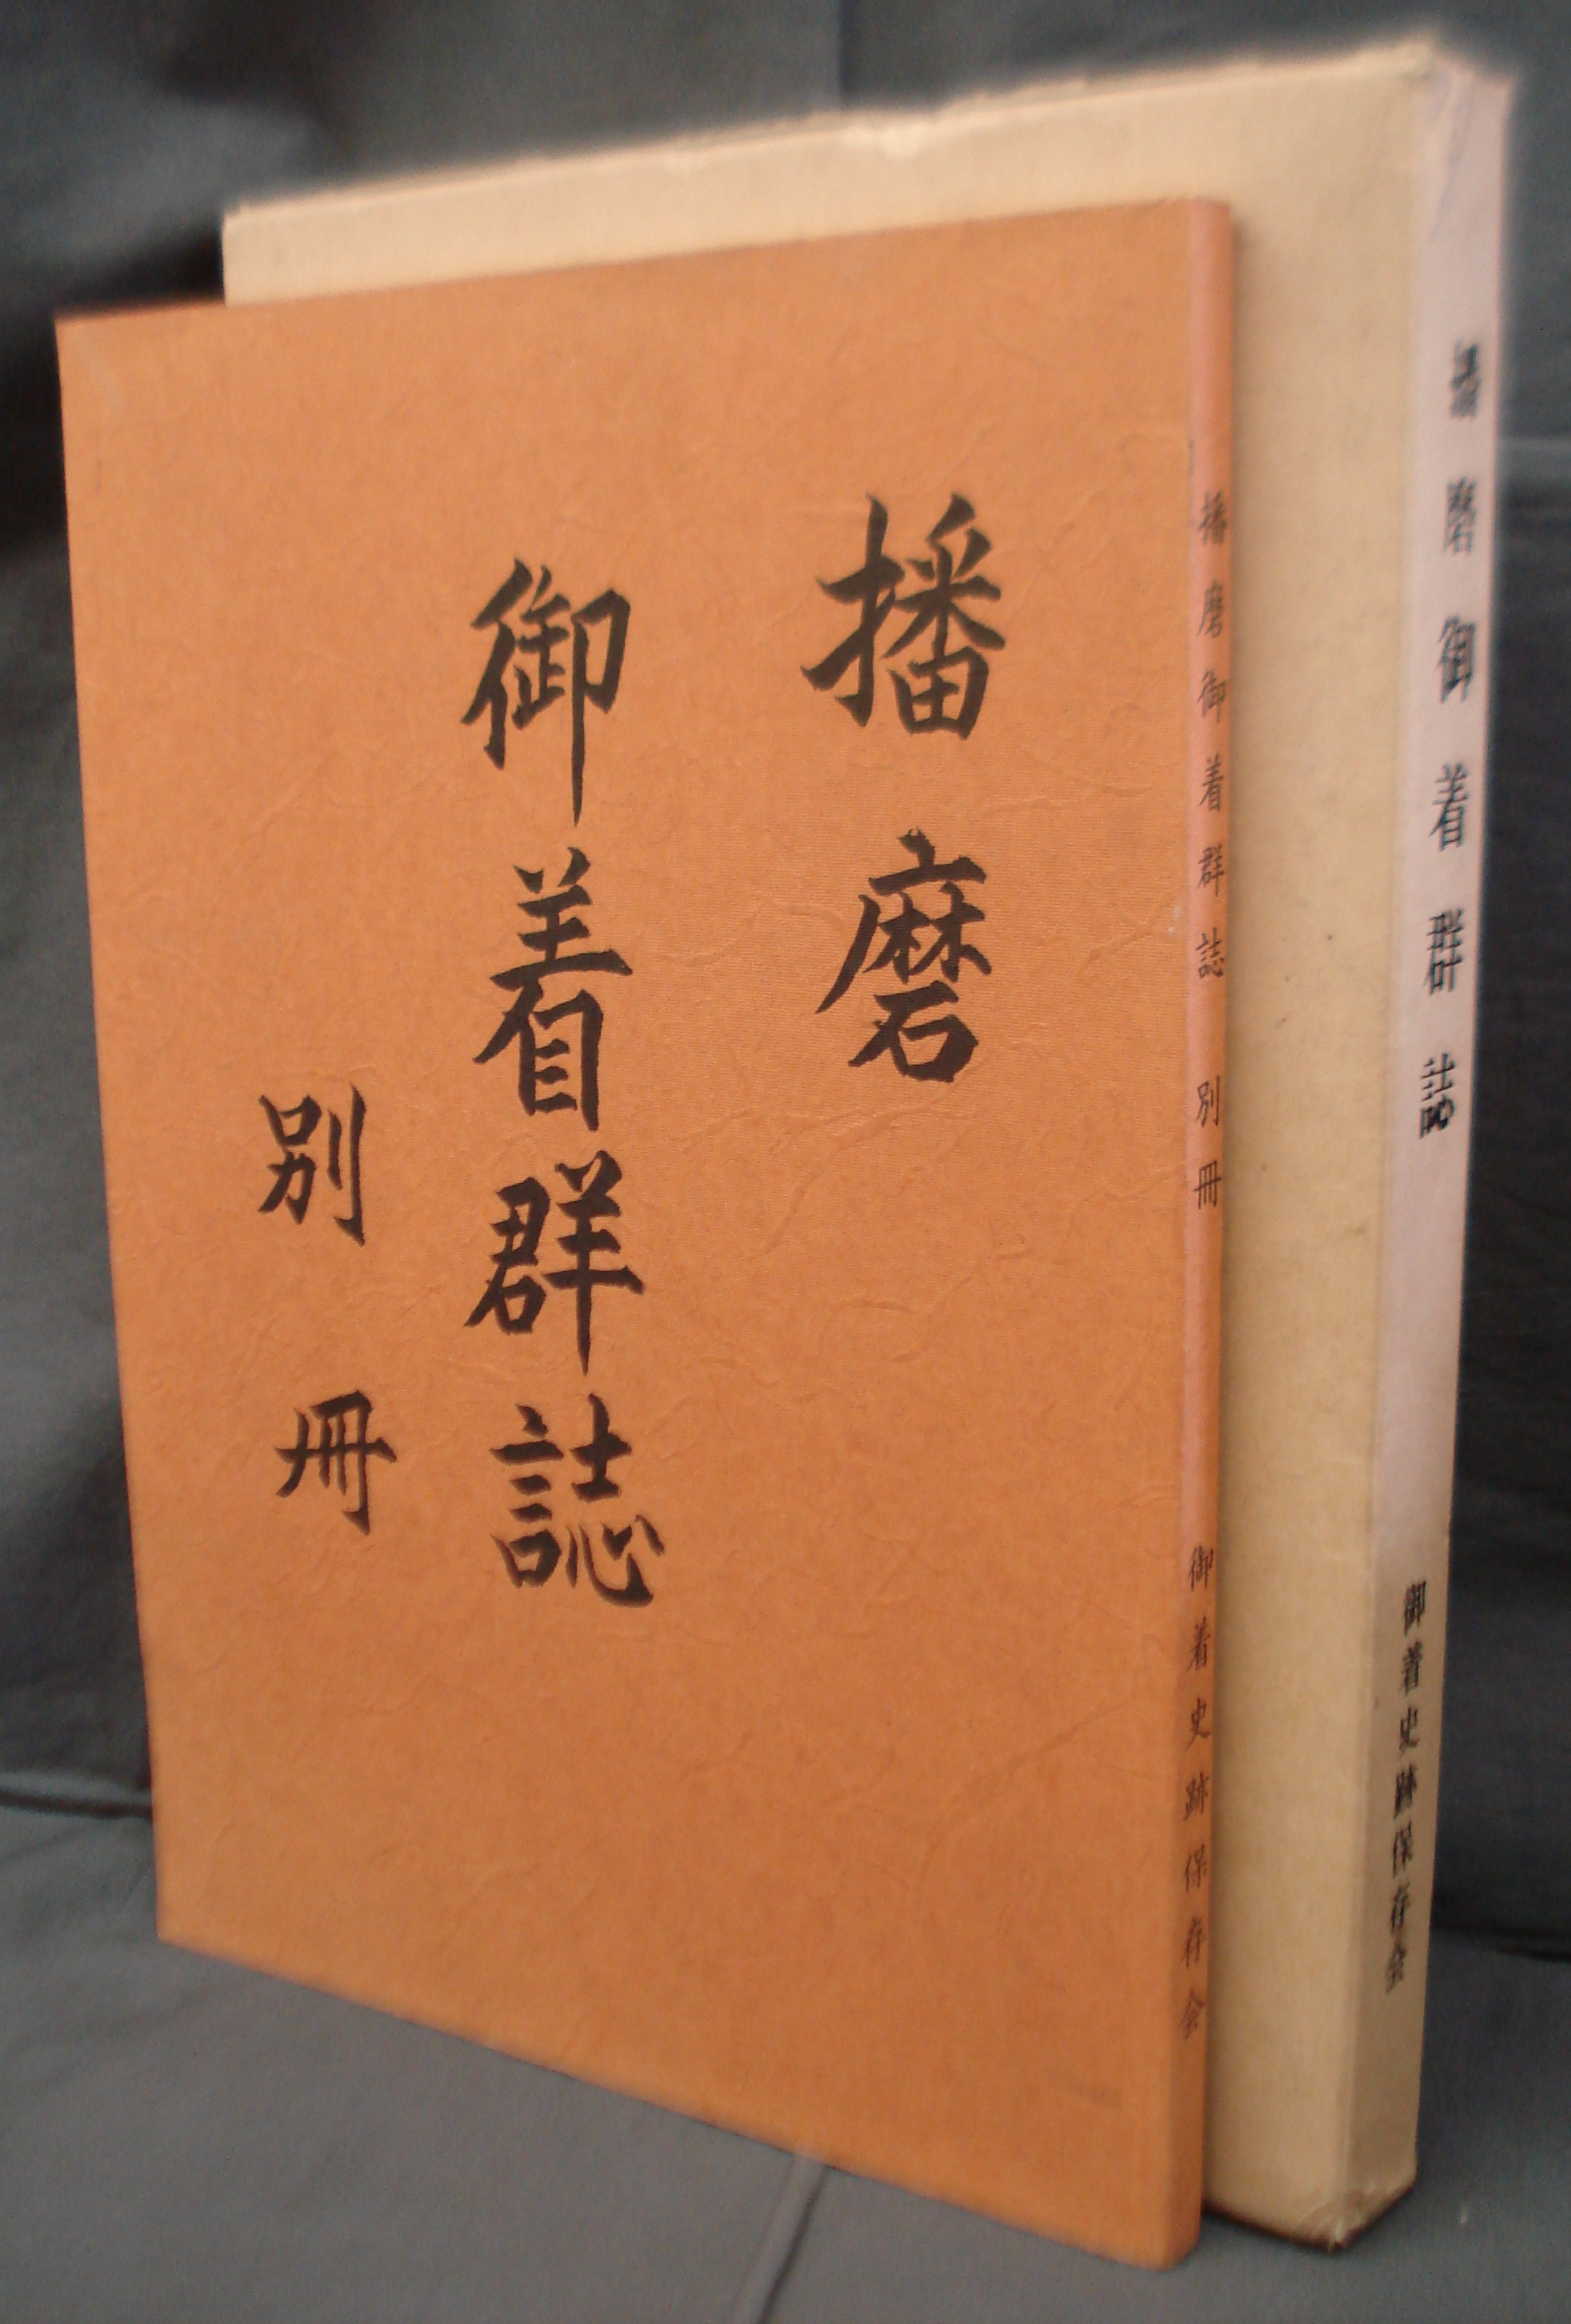 播磨
御着群誌
別冊
播磨御着群誌 別冊 御着史跡保存会
播磨御着群誌 御着史跡保存会